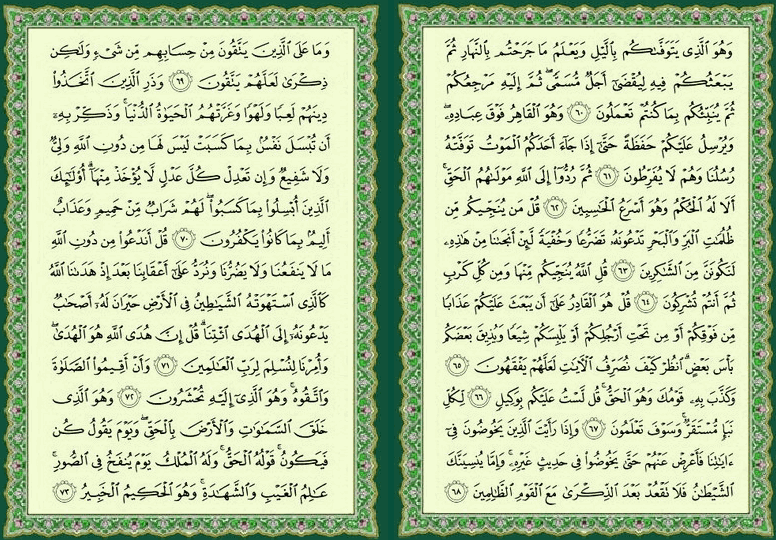 وَهُوَ ٱلَّذِى يَتَوَفَّىٰكُم بِٱلَّيْلِ وَيَعْلَمُ مَا جَرَحْتُم بِٱلنَّهَارِ ثُمَّ
يَبْعَثُكُمْ فِيهِ لِيُقْضَىٰٓ أَجَلٌ مُّسَمًّى ۖ ثُمَّ إِلَيْهِ مَرْجِعُكُمْ
ثُمَّ يُنَبِّئُكُم بِمَا كُنتُمْ تَعْمَلُونَ ٦٠ وَهُوَ ٱلْقَاهِرُ فَوْقَ عِبَادِهِۦ ۖ
وَيُرْسِلُ عَلَيْكُمْ حَفَظَةً حَتَّىٰٓ إِذَا جَآءَ أَحَدَكُمُ ٱلْمَوْتُ تَوَفَّتْهُ
رُسُلُنَا وَهُمْ لَا يُفَرِّطُونَ ٦١ ثُمَّ رُدُّوٓا۟ إِلَى ٱللَّهِ مَوْلَىٰهُمُ ٱلْحَقِّ ۚ
أَلَا لَهُ ٱلْحُكْمُ وَهُوَ أَسْرَعُ ٱلْحَـٰسِبِينَ ٦٢ قُلْ مَن يُنَجِّيكُم مِّن
ظُلُمَـٰتِ ٱلْبَرِّ وَٱلْبَحْرِ تَدْعُونَهُۥ تَضَرُّعًا وَخُفْيَةً لَّئِنْ أَنجَىٰنَا مِنْ هَـٰذِهِۦ
لَنَكُونَنَّ مِنَ ٱلشَّـٰكِرِينَ ٦٣ قُلِ ٱللَّهُ يُنَجِّيكُم مِّنْهَا وَمِن كُلِّ كَرْبٍ
ثُمَّ أَنتُمْ تُشْرِكُونَ ٦٤ قُلْ هُوَ ٱلْقَادِرُ عَلَىٰٓ أَن يَبْعَثَ عَلَيْكُمْ عَذَابًا
مِّن فَوْقِكُمْ أَوْ مِن تَحْتِ أَرْجُلِكُمْ أَوْ يَلْبِسَكُمْ شِيَعًا وَيُذِيقَ بَعْضَكُم
بَأْسَ بَعْضٍ ۗ ٱنظُرْ كَيْفَ نُصَرِّفُ ٱلْـَٔايَـٰتِ لَعَلَّهُمْ يَفْقَهُونَ ٦٥
وَكَذَّبَ بِهِۦ قَوْمُكَ وَهُوَ ٱلْحَقُّ ۚ قُل لَّسْتُ عَلَيْكُم بِوَكِيلٍ ٦٦ لِّكُلِّ
نَبَإٍ مُّسْتَقَرٌّ ۚ وَسَوْفَ تَعْلَمُونَ ٦٧ وَإِذَا رَأَيْتَ ٱلَّذِينَ يَخُوضُونَ فِىٓ
ءَايَـٰتِنَا فَأَعْرِضْ عَنْهُمْ حَتَّىٰ يَخُوضُوا۟ فِى حَدِيثٍ غَيْرِهِۦ ۚ وَإِمَّا يُنسِيَنَّكَ
ٱلشَّيْطَـٰنُ فَلَا تَقْعُدْ بَعْدَ ٱلذِّكْرَىٰ مَعَ ٱلْقَوْمِ ٱلظَّـٰلِمِينَ ٦٨
وَمَا عَلَى ٱلَّذِينَ يَتَّقُونَ مِنْ حِسَابِهِم مِّن شَىْءٍ وَلَـٰكِن
ذِكْرَىٰ لَعَلَّهُمْ يَتَّقُونَ ٦٩ وَذَرِ ٱلَّذِينَ ٱتَّخَذُوا۟
دِينَهُمْ لَعِبًا وَلَهْوًا وَغَرَّتْهُمُ ٱلْحَيَوٰةُ ٱلدُّنْيَا ۚ وَذَكِّرْ بِهِۦٓ
أَن تُبْسَلَ نَفْسٌۢ بِمَا كَسَبَتْ لَيْسَ لَهَا مِن دُونِ ٱللَّهِ وَلِىٌّ
وَلَا شَفِيعٌ وَإِن تَعْدِلْ كُلَّ عَدْلٍ لَّا يُؤْخَذْ مِنْهَآ ۗ أُو۟لَـٰٓئِكَ
ٱلَّذِينَ أُبْسِلُوا۟ بِمَا كَسَبُوا۟ ۖ لَهُمْ شَرَابٌ مِّنْ حَمِيمٍ وَعَذَابٌ
أَلِيمٌۢ بِمَا كَانُوا۟ يَكْفُرُونَ ٧٠ قُلْ أَنَدْعُوا۟ مِن دُونِ ٱللَّهِ
مَا لَا يَنفَعُنَا وَلَا يَضُرُّنَا وَنُرَدُّ عَلَىٰٓ أَعْقَابِنَا بَعْدَ إِذْ هَدَىٰنَا ٱللَّهُ
كَٱلَّذِى ٱسْتَهْوَتْهُ ٱلشَّيَـٰطِينُ فِى ٱلْأَرْضِ حَيْرَانَ لَهُۥٓ أَصْحَـٰبٌ
يَدْعُونَهُۥٓ إِلَى ٱلْهُدَى ٱئْتِنَا ۗ قُلْ إِنَّ هُدَى ٱللَّهِ هُوَ ٱلْهُدَىٰ ۖ
وَأُمِرْنَا لِنُسْلِمَ لِرَبِّ ٱلْعَـٰلَمِينَ ٧١ وَأَنْ أَقِيمُوا۟ ٱلصَّلَوٰةَ
وَٱتَّقُوهُ ۚ وَهُوَ ٱلَّذِىٓ إِلَيْهِ تُحْشَرُونَ ٧٢ وَهُوَ ٱلَّذِى
خَلَقَ ٱلسَّمَـٰوَٰتِ وَٱلْأَرْضَ بِٱلْحَقِّ ۖ وَيَوْمَ يَقُولُ كُن
فَيَكُونُ ۚ قَوْلُهُ ٱلْحَقُّ ۚ وَلَهُ ٱلْمُلْكُ يَوْمَ يُنفَخُ فِى ٱلصُّورِ ۚ
عَـٰلِمُ ٱلْغَيْبِ وَٱلشَّهَـٰدَةِ ۚ وَهُوَ ٱلْحَكِيمُ ٱلْخَبِيرُ ٧٣